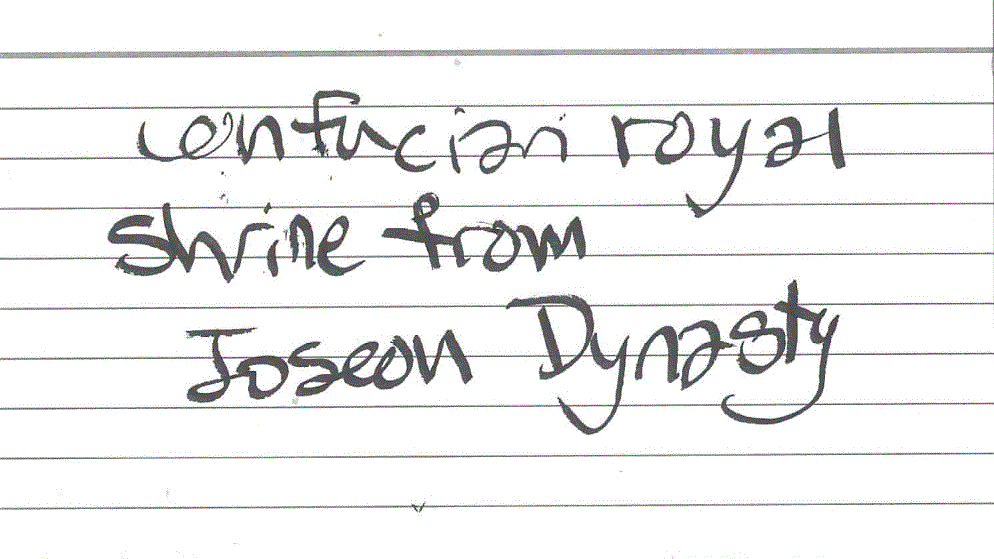 confucian royal
shrine from
Joseon Dynasty